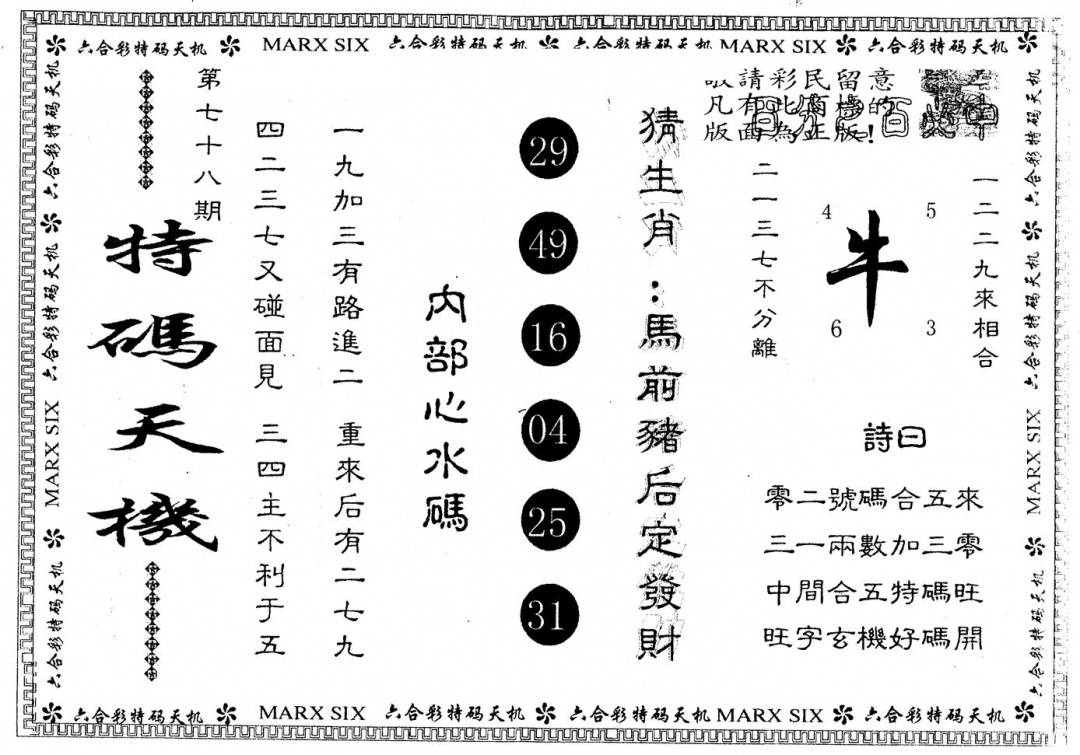 六合彩特码天机 MARX SIX 六合彩特码天机 六合彩特码天机 MARX SIX 六合彩特码天机
敬請彩民留意
凡有此商標的
版面為正版!
一二二九來相合
4 5
牛
6 3
二一三七不分離
詩曰
零二號碼合五來
三一兩數加三零
中間合五特碼旺
旺字玄機好碼開
猜生肖：馬前豬后定發財
29
49
16
04
25
31
內部心水碼
一九加三有路進二 重來后有二七九
四二三七又碰面見 三四主不利于五
第七十八期
特碼天機
六合彩特码天机 六合彩特码天机 MARX SIX 六合彩特码天机
六合彩特码天机 六合彩特码天机 MARX SIX 六合彩特码天机
六合彩特码天机 MARX SIX 六合彩特码天机 六合彩特码天机 MARX SIX 六合彩特码天机